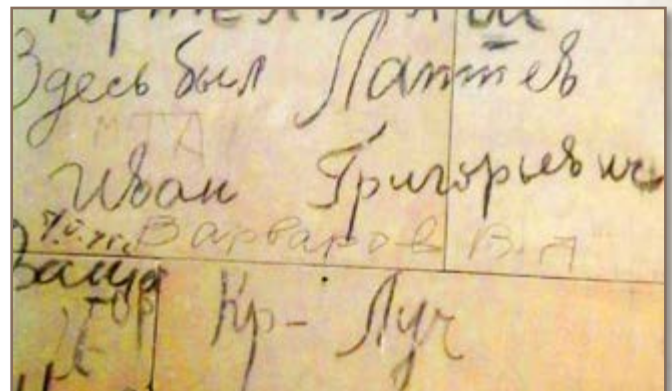 Здесь был Лаптев
МТА
Иван Григорьевич
Варваров В. А
Ваща
Кр- Луч